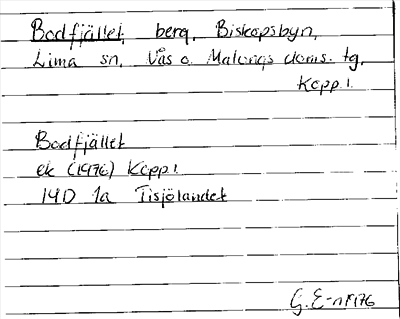 Bodfjället, berg, Biskopsbyn,
Lima sn, Väs o. Malungs doms. tg,
Kopp. l.
Bodfjället
ek (1976) Kopp l.
14D 1a Tisjölandet
G. E-n 1976